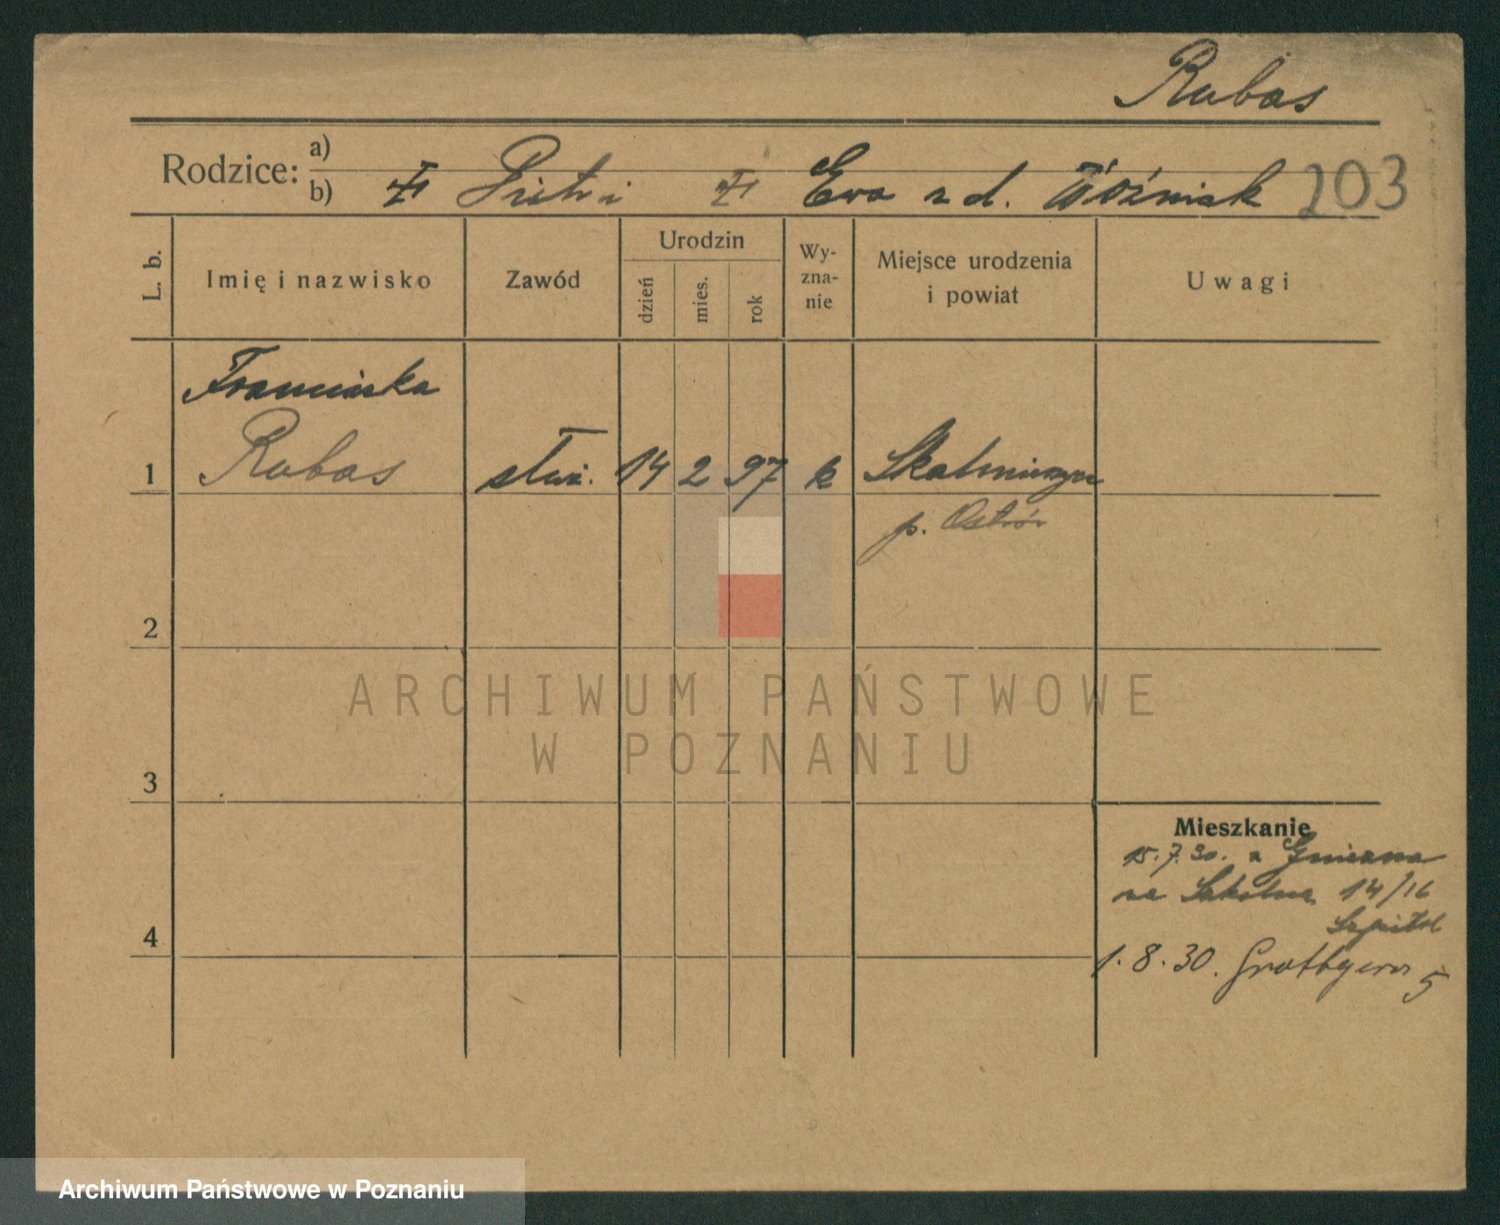 Rubas
Rodzice: a)
b) Piotr i Ewa z d. Woźniak 203
L. b.
Imię i nazwisko
Zawód
Urodzin
dzień
mies.
rok
Wy-
zna-
nie
Miejsce urodzenia
i powiat
Uwagi
Franciszka
1 Rubas służ. 14 2 97 k Skalmierzyce
p. Ostrów
2
3
4
Mieszkanie
15.7.30. z Gniezna
na Szkolna 14/16
Szpital
1.8.30. Grottgera 5
ARCHIWUM PAŃSTWOWE
W POZNANIU
Archiwum Państwowe w Poznaniu